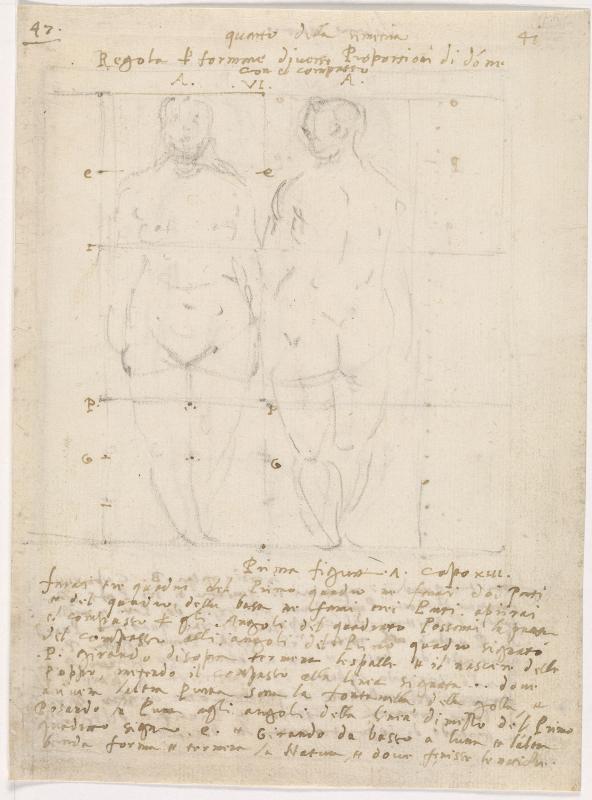 47.
quarto della simetria
41
Regola p formare diverse Proportioni di dóne
con el compasso
A. VI. A.
e e
P. P
G G
Prima figura .A. Capo XIII.
farai tre quadri del Primo quadro ne farai doi Parti
et del quadro della basa ne farai trei Parti. aprirai
el compasso p gli Angoli del quadrato Possarai la punta
del compasso alli angoli del Primo quadro signato
.P. girando disopra termina lespalle et il nascere delle
Poppe, metendo il compasso alla linea signata .. dove
laltra Punta sera la fontanella della golla et
Posando la Punta agli angoli della linea di mezo del Primo
quadrato segno .e. et Girando da basso a luna et laltra
banda forma et termina la statura, et dove finisse le natiche.